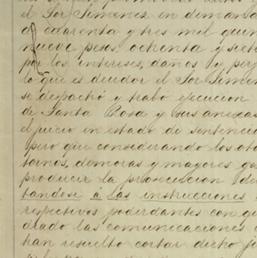 el Sor Jimenez, en demanda
de cuarenta y tres mil quin
nueve pesos ochenta y siete
por los intereses, daños y perj
lo que es deudor el Sor Jimen
se despachó y trabo ejecucion
de Santa Rosa y sus anexas
el juicio en estado de sentencia
pero que considerando los
tornos, demoras y mayores ga
producir la prosecucion de
tandose á las instrucciones
respectivos poderdantes con qu
drado las comunicaciones
han resuelto cortar dicho ju